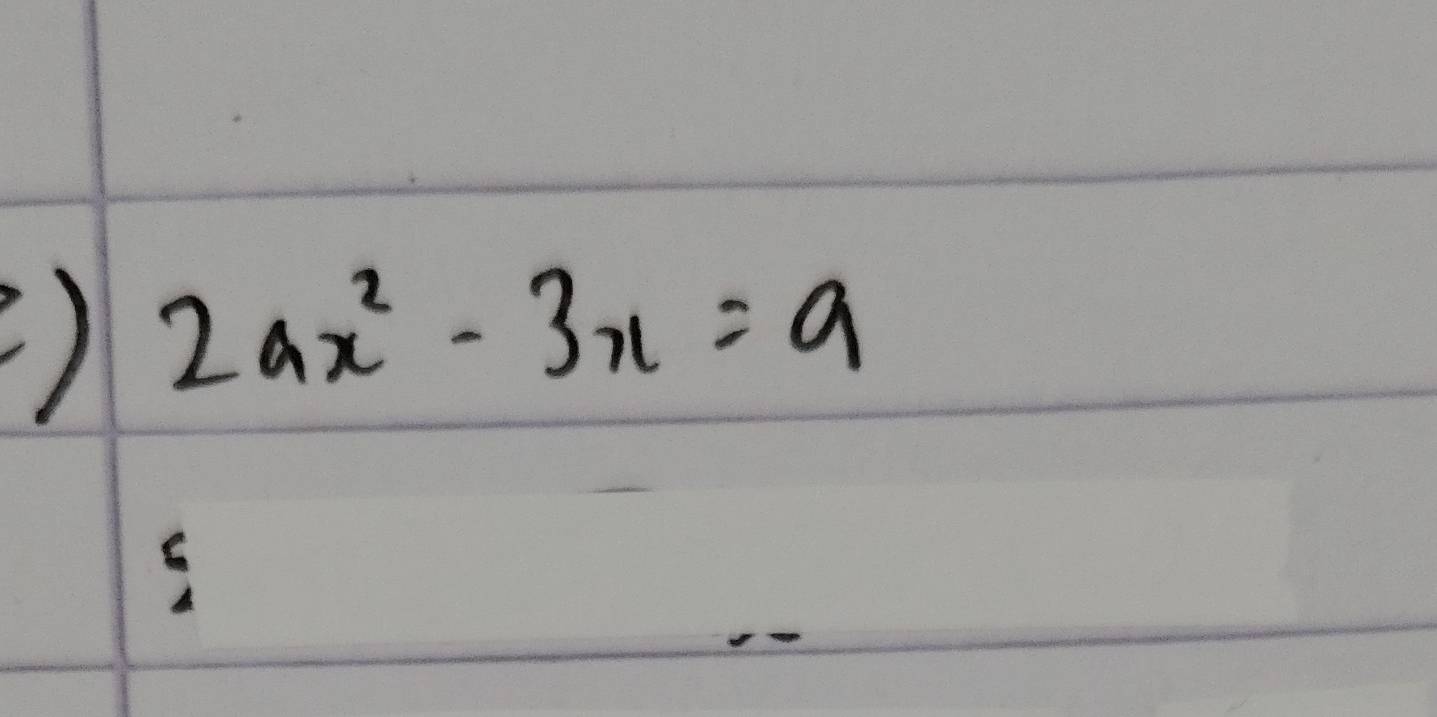 ) 2ax² - 3x = a